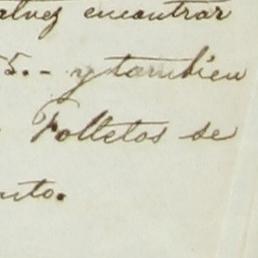 alvez encontrar
55.- y tambien
Folletos se
nto.